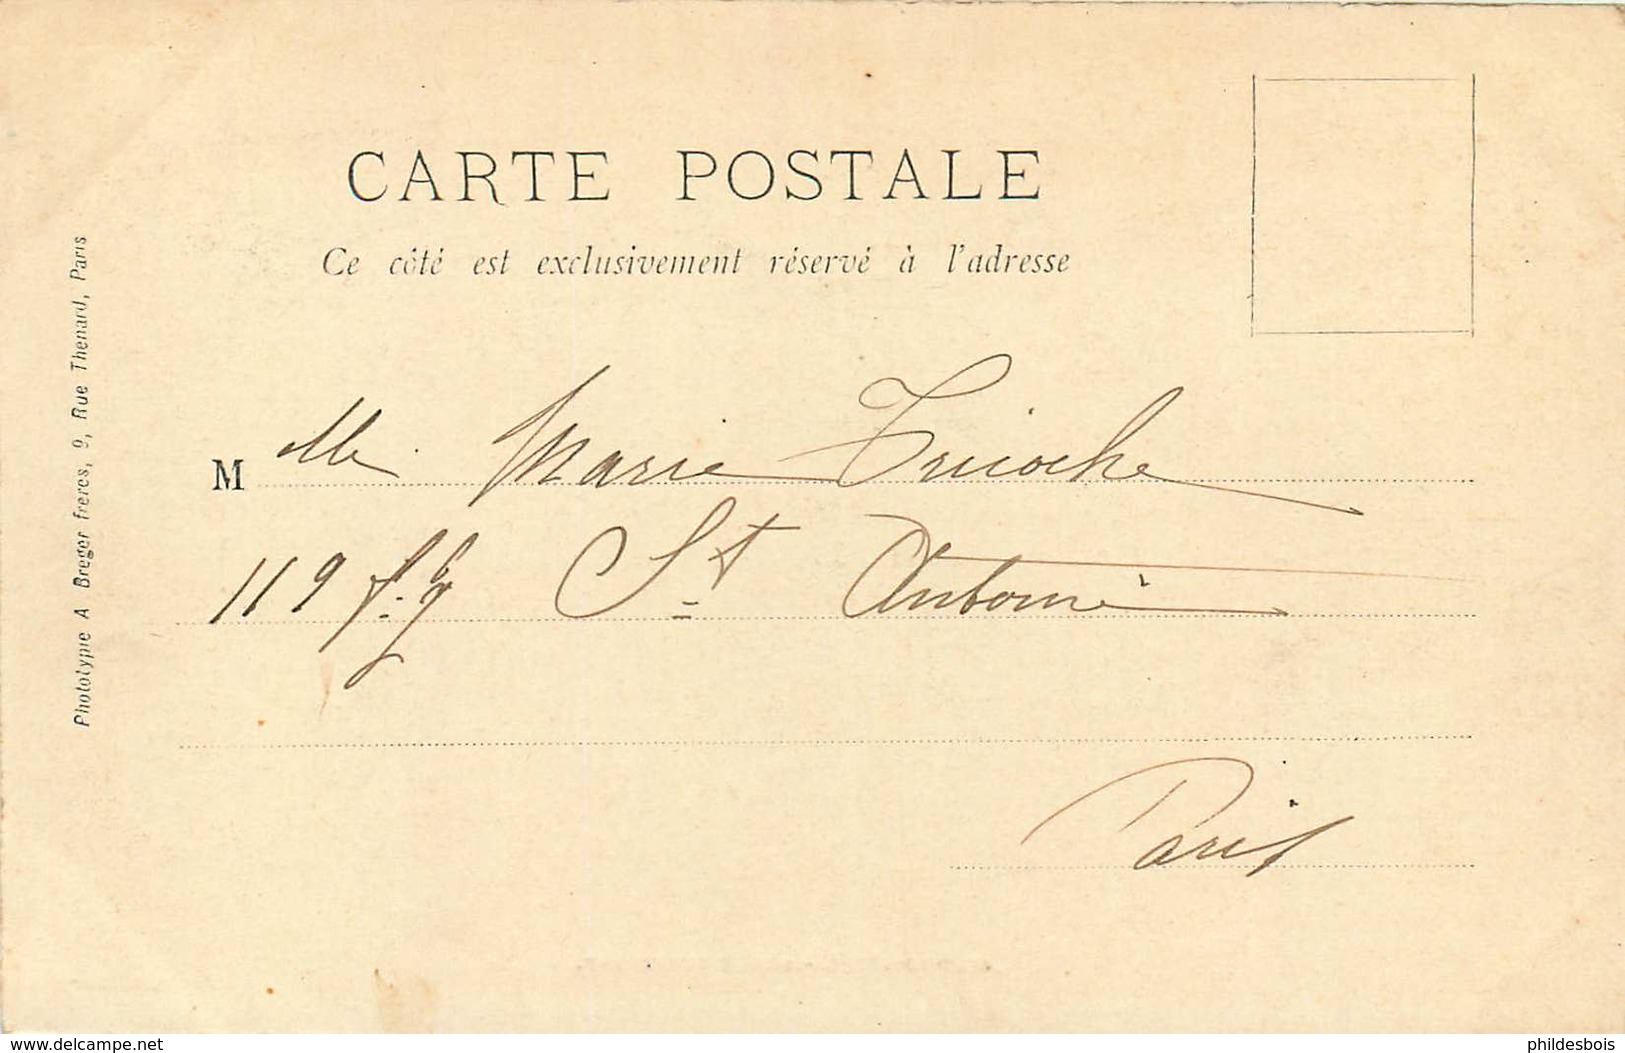 CARTE POSTALE
Ce côté est exclusivement réservé à l'adresse
Phototypie A Breger frères, 9, Rue Thenard, Paris
M lle Marie Tricoche
119 f.g St Antoine
Paris
www.delcampe.net
phildesbois